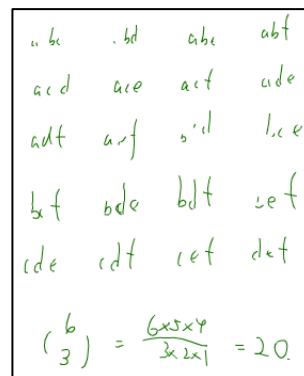 abc abd abe abf
acd ace acf ade
adf aef bcd bce
bcf bde bdf bef
cde cdf cef def
(6 3) = 6x5x4 / 3x2x1 = 20.